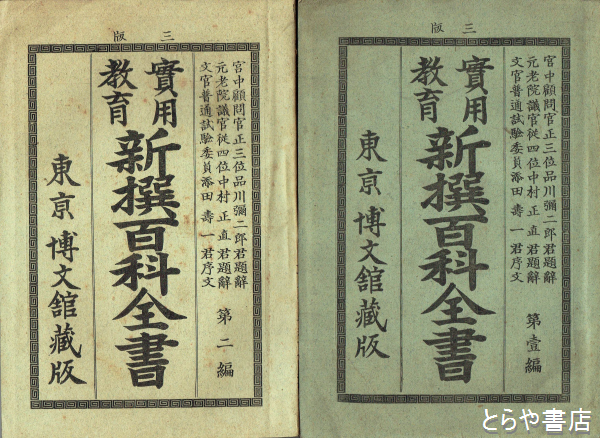 三版
宮中顧問官正三位品川彌二郎君題辭
元老院議官從四位中村正直君題辭
文官普通試驗委員添田壽一君序文
第二編
實用
教育
新撰百科全書
東京博文舘藏版
三版
宮中顧問官正三位品川彌二郎君題辭
元老院議官從四位中村正直君題辭
文官普通試驗委員添田壽一君序文
第壹編
實用
教育
新撰百科全書
東京博文舘藏版
とらや書店